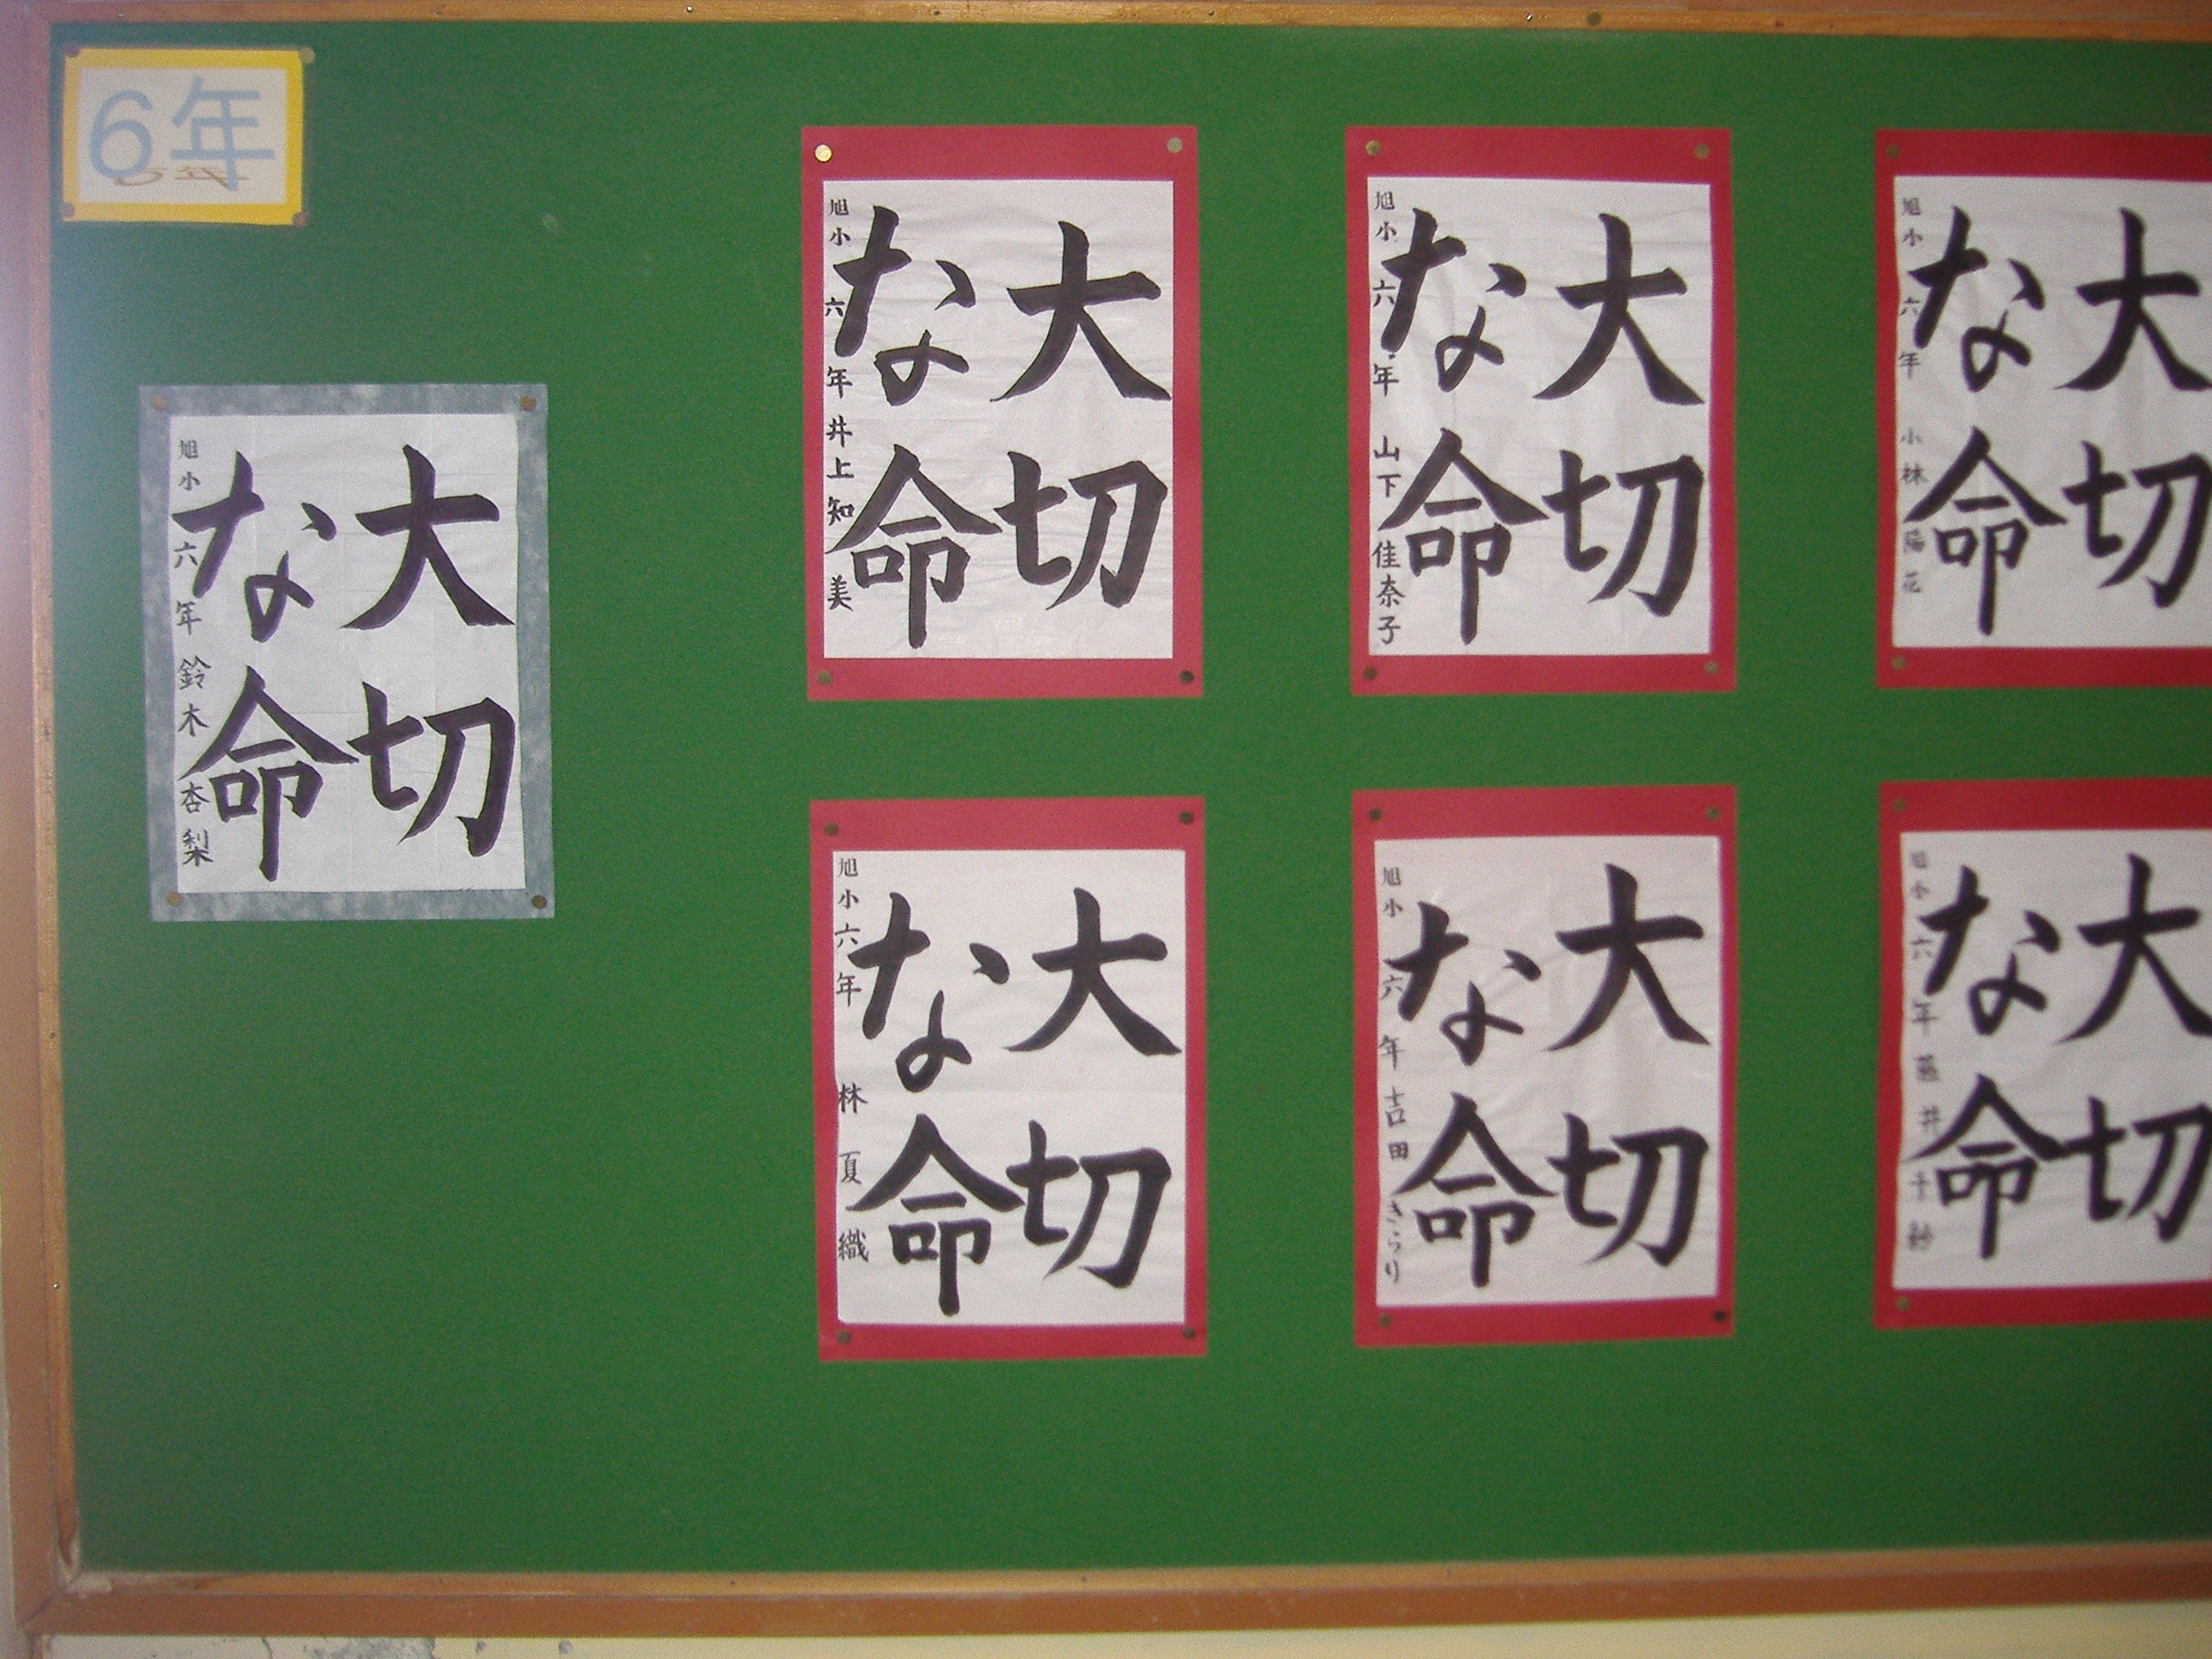 6年
大切
な命
旭小 六年 鈴木 杏梨
大切
な命
旭小 六年 井上 知美
大切
な命
旭小 六年 山下 佳奈子
大切
な命
旭小 六年 小林 陽花
大切
な命
旭小 六年 林 夏織
大切
な命
旭小 六年 吉田 きらり
大切
な命
旭小 六年 藤井 千紗